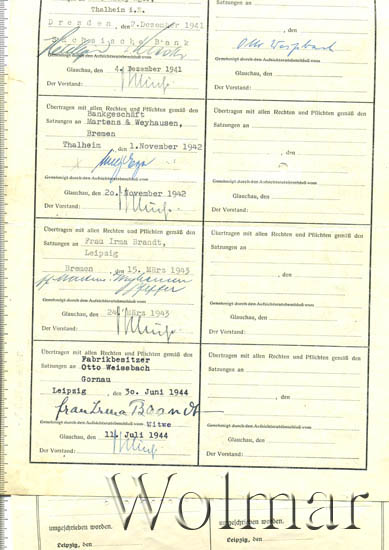 Thalheim i.E.
Dresden, den 2.Dezember 1941
Sächsische Bank
Genehmigt durch den Aufsichtsratsbeschluß vom
Glauchau, den 4. Dezember 1941
Der Vorstand:
Übertragen mit allen Rechten und Pflichten gemäß den
Bankgeschäft
Satzungen an Martens & Weyhausen,
Bremen
Thalheim, den 1.November 1942
Genehmigt durch den Aufsichtsratsbeschluß vom
Glauchau, den 20. November 1942
Der Vorstand:
Übertragen mit allen Rechten und Pflichten gemäß den
Satzungen an Frau Irma Brandt,
Leipzig
Bremen, den 15. März 1943
Genehmigt durch den Aufsichtsratsbeschluß vom
Glauchau, den 24. März 1943
Der Vorstand:
Übertragen mit allen Rechten und Pflichten gemäß den
Fabrikbesitzer
Satzungen an Otto Weissbach
Gornau
Leipzig, den 30. Juni 1944
Frau Irma Brandt
Witwe
Genehmigt durch den Aufsichtsratsbeschluß vom
Glauchau, den 11. Juli 1944
Der Vorstand:
, den
Otto Weissbach
Genehmigt durch den Aufsichtsratsbeschluß vom
Glauchau, den
Der Vorstand:
Übertragen mit allen Rechten und Pflichten gemäß den
Satzungen an
, den
Genehmigt durch den Aufsichtsratsbeschluß vom
Glauchau, den
Der Vorstand:
Übertragen mit allen Rechten und Pflichten gemäß den
Satzungen an
, den
Genehmigt durch den Aufsichtsratsbeschluß vom
Glauchau, den
Der Vorstand:
Übertragen mit allen Rechten und Pflichten gemäß den
Satzungen an
, den
Genehmigt durch den Aufsichtsratsbeschluß vom
Glauchau, den
Der Vorstand:
Wolmar
umgeschrieben worden.
Leipzig, den
umgeschrieben worden.
Leipzig, den